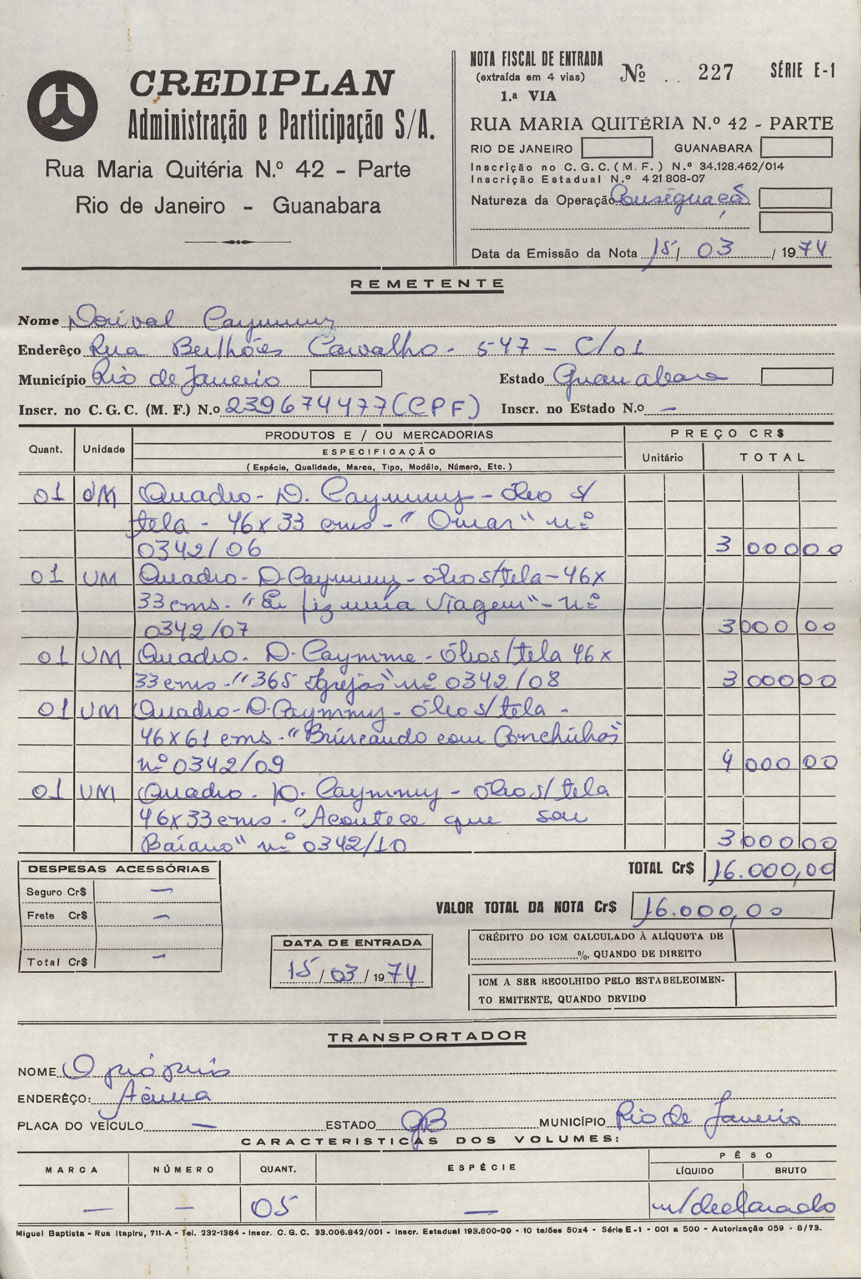 CREDIPLAN
Administração e Participação S/A.
Rua Maria Quitéria N.º 42 - Parte
Rio de Janeiro - Guanabara
NOTA FISCAL DE ENTRADA
(extraída em 4 vias)
1.ª VIA
Nº 227 SÉRIE E-1
RUA MARIA QUITÉRIA N.º 42 - PARTE
RIO DE JANEIRO GUANABARA
Inscrição no C.G.C.(M.F.) N.º 34.128.462/014
Inscrição Estadual N.º 421808-07
Natureza da Operação Consignação
Data da Emissão da Nota 15/ 03 / 1974
REMETENTE
Nome Dorival Caymmy
Enderêço Rua Belhões Carvalho - 547 - C/01
Município Rio de Janeiro Estado Guanabara
Inscr. no C.G.C. (M.F.) N.º 239674477 (CPF) Inscr. no Estado N.º -
Quant. Unidade PRODUTOS E / OU MERCADORIAS PREÇO CR$
ESPECIFICAÇÃO
(Espécie, Qualidade, Marca, Tipo, Modêlo, Número, Etc.) Unitário TOTAL
01 UM Quadro - D. Caymmy - óleo s/
tela - 46x33 cms - "Omar" nº
0342/06 3 000 00
01 UM Quadro - D Caymmy - óleo s/tela - 46x
33 cms - "Eu fiz uma Viagem" - nº
0342/07 3 000 00
01 UM Quadro - D. Caymme - óleo s/tela 46x
33 cms - "365 Igrejas" nº 0342/08 3 000 00
01 UM Quadro - D. Caymmy - óleo s/tela -
46x61 cms - "Brincando com Conchinhas"
nº 0342/09 4 000 00
01 UM Quadro - D. Caymmy - óleo s/tela
46x33 cms - "Acontece que sou
Baiano" nº 0342/10 3 000 00
TOTAL Cr$ 16.000,00
VALOR TOTAL DA NOTA Cr$ 16.000,00
DESPESAS ACESSÓRIAS
Seguro Cr$ -
Frete Cr$ -
Total Cr$ -
DATA DE ENTRADA
15/03/1974
CRÉDITO DO ICM CALCULADO À ALÍQUOTA DE
%, QUANDO DE DIREITO
ICM A SER RECOLHIDO PELO ESTABELECIMEN-
TO EMITENTE, QUANDO DEVIDO
TRANSPORTADOR
NOME O próprio
ENDERÊÇO: Acima
PLACA DO VEÍCULO - ESTADO GB MUNICÍPIO Rio de Janeiro
CARACTERISTICAS DOS VOLUMES:
MARCA NÚMERO QUANT. ESPÉCIE PÊSO
LÍQUIDO BRUTO
- - 05 - n/declarado
Miguel Baptista - Rua Itapiru, 711-A - Tel. 232-1384 - Inscr. C.G.C. 33.006.842/001 - Inscr. Estadual 193.600-00 - 10 talões 50x4 - Série E-1 - 001 a 500 - Autorização 059 - 8/73.